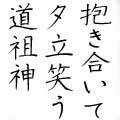 抱き合いて
夕立笑う
道祖神